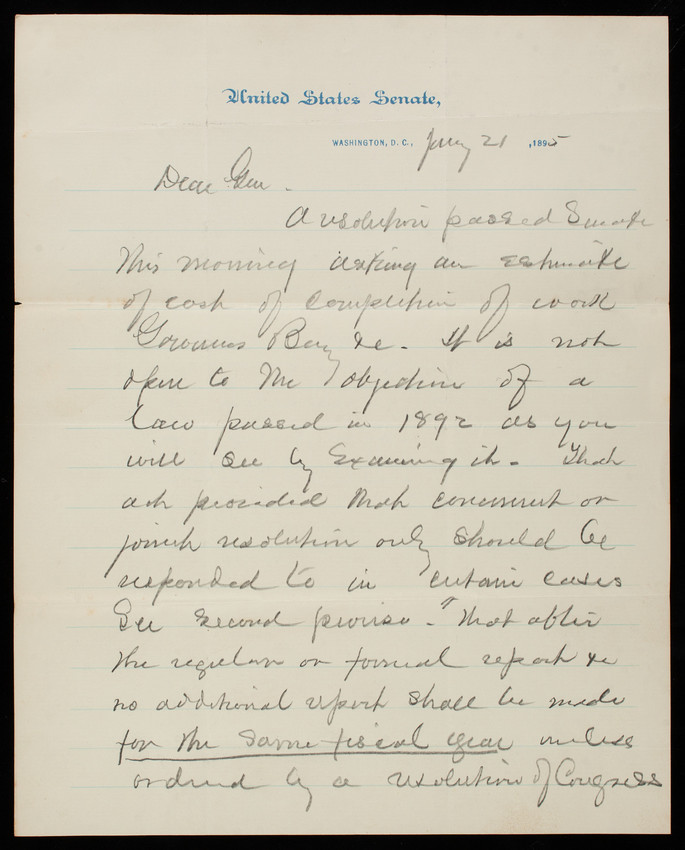 United States Senate,
WASHINGTON, D. C., Jany 21, 1895
Dear Gen.
A resolution passed Senate
this morning asking an estimate
of cost of completion of work
Gowanus Bay &c. It is not
open to the objection of a
law passed in 1892 as you
will see by Examining it. That
act provided that concurrent or
joint resolution only should be
responded to in certain cases
See second proviso. "That after
the regular or formal report &c
no additional report shall be made
for the same fiscal year unless
ordered by a resolution of Congress